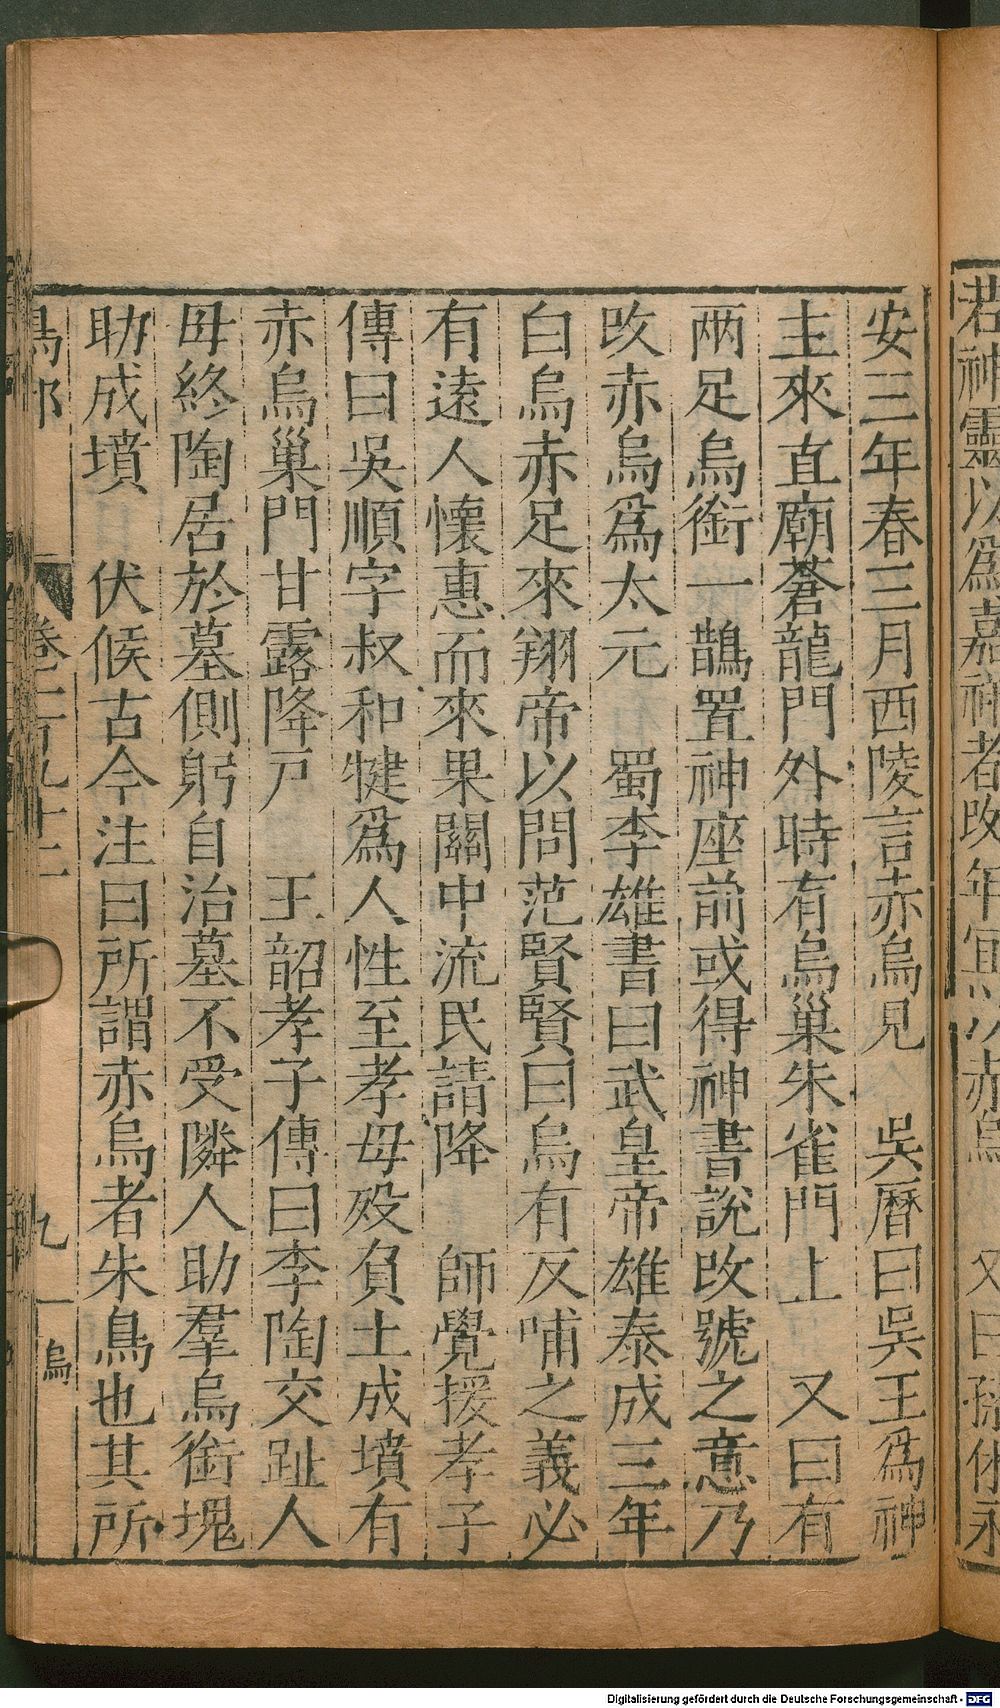 君神靈以爲嘉祥者改年宜以赤烏　又曰孫休永
安三年春三月西陵言赤烏見　吳曆曰吳王爲神
主來直廟蒼龍門外時有烏巢朱雀門上　又曰有
兩足烏銜一鵲置神座前或得神書說改號之意乃
改赤烏爲太元　蜀李雄書曰武皇帝雄泰成三年
白烏赤足來翔帝以問范賢賢曰烏有反哺之義必
有遠人懷惠而來果關中流民請降　師覺援孝子
傳曰吳順字叔和犍爲人性至孝母歿負土成墳有
赤烏巢門甘露降戸　王韶孝子傳曰李陶交趾人
母終陶居於墓側躬自治墓不受隣人助羣烏銜塊
助成墳　伏候古今注曰所謂赤烏者朱鳥也其所
鳥部　卷一百九十二　九　烏
Digitalisierung gefördert durch die Deutsche Forschungsgemeinschaft - DFG